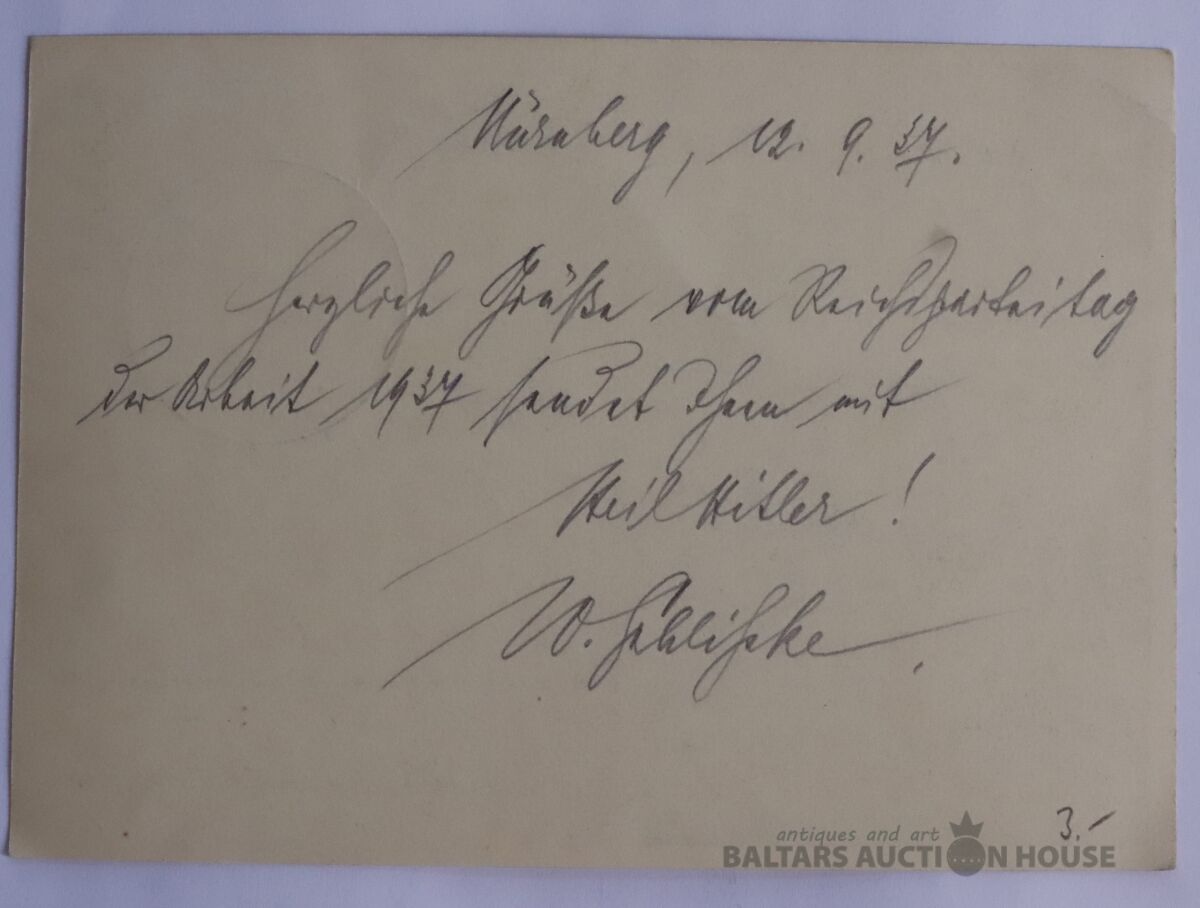 Nürnberg, 12. 9. 37.
Herzliche Grüße vom Reichsparteitag
der Arbeit 1937 sendet Ihnen mit
Heil Hitler!
W.
3.-
antiques and art
BALTARS AUCTION HOUSE